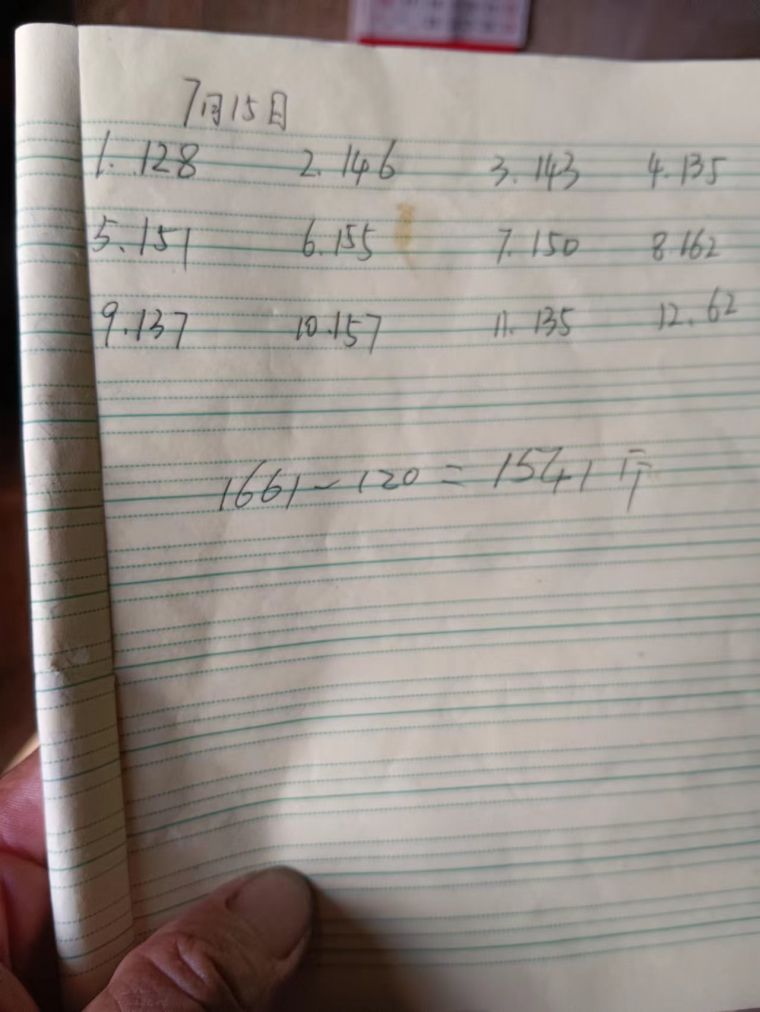 7月15日
1. 128 2. 146 3. 143 4. 135
5. 151 6. 155 7. 150 8. 162
9. 137 10. 157 11. 135 12. 62
1661 - 120 = 1541 斤